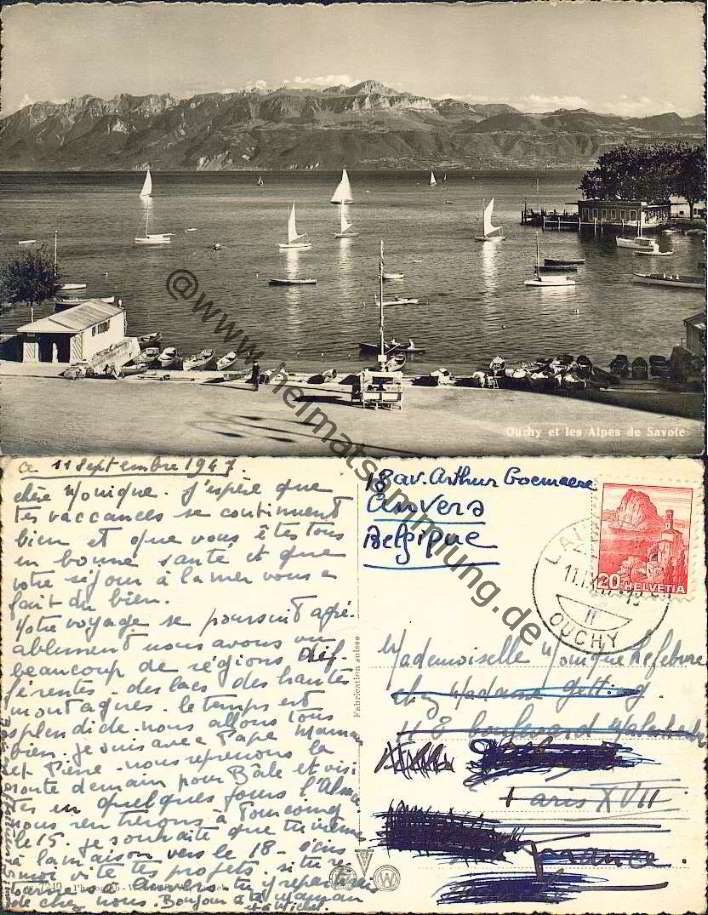 Ouchy et les Alpes de Savoie
@www.heimatsammlung.de
ce 11 Septembre 1947.
chère Monique. J'espère que
tes vaccances se continuent
bien et que vous êtes tous
en bonne santé et que
votre séjour à la mer vous a
fait du bien.
Votre voyage se poursuit agré-
ablement nous avons vu
beaucoup de régions dif-
férentes. des lacs des hautes
montagnes. le temps est
splendide. nous allons tous
bien. je suis avec Papa Maman
et Pierre. nous reprenons la
route demain pour Bâle et visi-
tes en quelques jours l'Alsace
nous rentrerons à Tourcoing
le 15. Je souhaite que tu viennes
à la maison vers le 18. écris
moi vite tes projets. si tu re-
à Anvers tu
de chez nous. Bonjour à ta Maman
et à Michel.
18 av. Arthur Goemaere
Anvers
Belgique
20 HELVETIA
OUCHY
Mademoiselle Monique Lefebvre
chez Madame
118 boulevard
Paris XVII
France.
Fabrication suisse